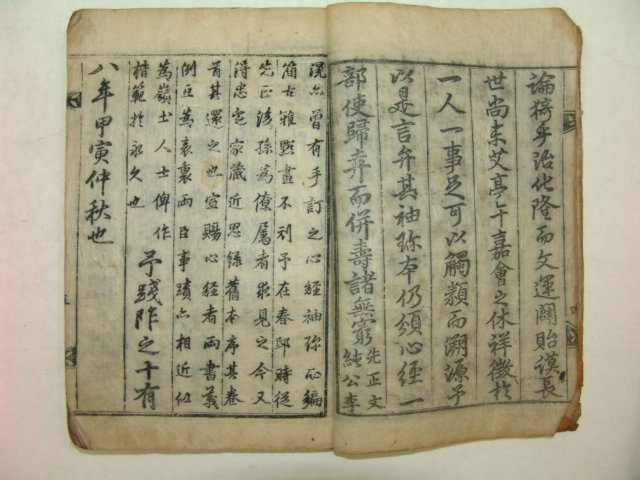 論猗乎治化隆而文運闢貽謨長
世尚未艾亭午嘉會之休祥徵於
一人一事足可以觸類而溯源予
以是言弁其袖珍本仍頒心經一
部使歸弆而併壽諸無窮先正文
純公李
滉亦曾有手訂之心經袖珍而編
簡古雅點畫不刓予在春邸時從
先正後孫爲僚属者取見之今又
得忠定家藏近思錄舊本序其卷
首其還之也宣賜心經者兩書義
例互爲表裏兩臣事蹟亦相近似
爲嶺士人士俾作
楷範於永久也予踐阼之十有
八年甲寅仲秋也